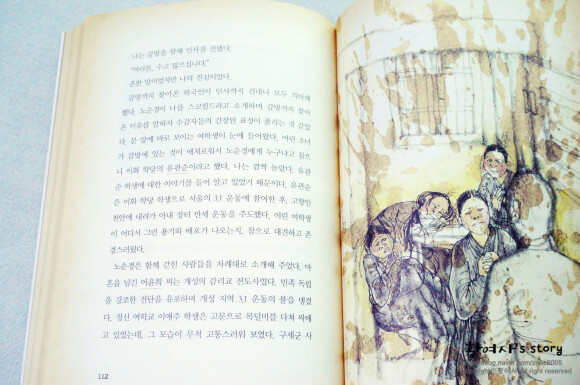 나는 감방을 향해 인사를 건넸다.
"여러분, 수고 많으십니다."
흔한 말이었지만 나의 진심이었다.
감방까지 찾아온 외국인이 인사까지 건네니 모두 의아해
했다. 노순경이 나를 스코필드라고 소개하며 감방까지 찾아
온 이유를 말하자 수감자들의 긴장된 표정이 풀리는 것 같았
다. 문 앞에 바로 보이는 여학생이 눈에 들어왔다. 어린 소녀
가 감방에 있는 것이 애처로워서 노순경에게 누구냐고 물으
니 이화 학당의 유관순이라고 했다. 나는 깜짝 놀랐다. 유관
순 학생에 대한 이야기를 들어 알고 있었기 때문이다. 유관순
은 이화 학당 학생으로 서울의 3.1 운동에 참여한 후, 고향인
천안에 내려가 아내 장터 만세 운동을 주도했다. 어린 여학생
이 어디서 그런 용기와 배포가 나오는지, 참으로 대견하고 존
경스러웠다.
노순경은 함께 갇힌 사람들을 차례대로 소개해 주었다. 마
흔을 넘긴 어윤희 씨는 개성의 감리교 전도사였다. 민족 독립
을 강조한 전단을 유포하며 개성 지역 3.1 운동의 불을 댕겼
다. 정신 여학교 이애주 학생은 고문으로 목덜미를 다쳐 싸매
고 있었는데, 그 모습이 무척 고통스러워 보였다. 구세군 사
112
팡여사's story